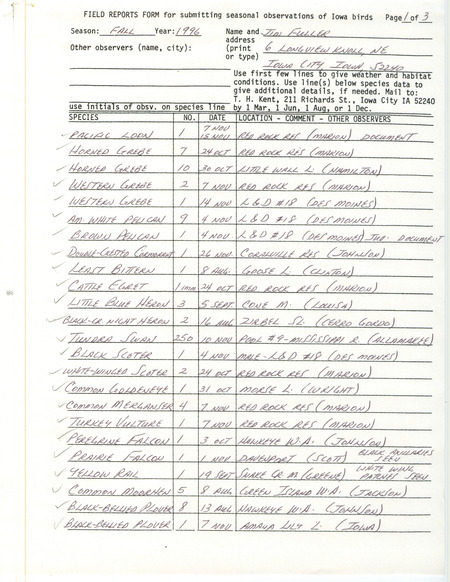 FIELD REPORTS FORM for submitting seasonal observations of Iowa birds Page 1 of 3
Season: FALL Year: 1996 Name and JIM FULLER
address 6 LONGVIEW KNOLL NE
Other observers (name, city): (print
or type) IOWA CITY IOWA 52240
Use first few lines to give weather and habitat
conditions. Use line(s) below species data to
give additional details, if needed. Mail to:
T. H. Kent, 211 Richards St., Iowa City IA 52240
use initials of obsv. on species line by 1 Mar, 1 Jun, 1 Aug, or 1 Dec.
SPECIES NO. DATE LOCATION - COMMENT - OTHER OBSERVERS
7 NOV
PACIFIC LOON 1 15 NOV RED ROCK RES (MARION) DOCUMENT
HORNED GREBE 7 24 OCT RED ROCK RES (MARION)
HORNED GREBE 10 30 OCT LITTLE WALL L. (HAMILTON)
WESTERN GREBE 2 7 NOV RED ROCK RES (MARION)
WESTERN GREBE 1 14 NOV L&D #18 (DES MOINES)
AM. WHITE PELICAN 9 4 NOV L&D #18 (DES MOINES)
BROWN PELICAN 1 4 NOV L&D #18 (DES MOINES) DOCUMENT
DOUBLE-CRESTED CORMORANT 1 26 NOV CORALVILLE RES (JOHNSON)
LEAST BITTERN 1 8 AUG GOOSE L. (CLINTON)
CATTLE EGRET 1 imm 24 OCT RED ROCK RES (MARION)
LITTLE BLUE HERON 3 5 SEPT CONE M. (LOUISA)
BLACK-CR NIGHT HERON 2 16 AUG ZIRBEL SL. (CERRO GORDO)
TUNDRA SWAN 250 10 NOV POOL #9-MISSISSIPPI R. (ALLAMAKEE)
BLACK SCOTER 1 4 NOV MALE-L&D #18 (DES MOINES)
WHITE-WINGED SCOTER 2 24 OCT RED ROCK RES (MARION)
COMMON GOLDENEYE 1 31 OCT MORSE L. (WRIGHT)
COMMON MERGANSER 4 7 NOV RED ROCK RES (MARION)
TURKEY VULTURE 1 7 NOV RED ROCK RES (MARION)
PEREGRINE FALCON 1 3 OCT HAWKEYE W.A. (JOHNSON)
PRAIRIE FALCON 1 1 NOV DAVENPORT (SCOTT) BLACK AXILLARIES SEEN
YELLOW RAIL 1 19 SEPT SNAKE CR M (GREENE) WHITE WING PATCHES SEEN
COMMON MOORHEN 5 8 AUG GREEN ISLAND W.A. (JACKSON)
BLACK-BELLIED PLOVER 8 13 AUG HAWKEYE W.A. (JOHNSON)
BLACK-BELLIED PLOVER 1 7 NOV AMANA LILY L. (IOWA)